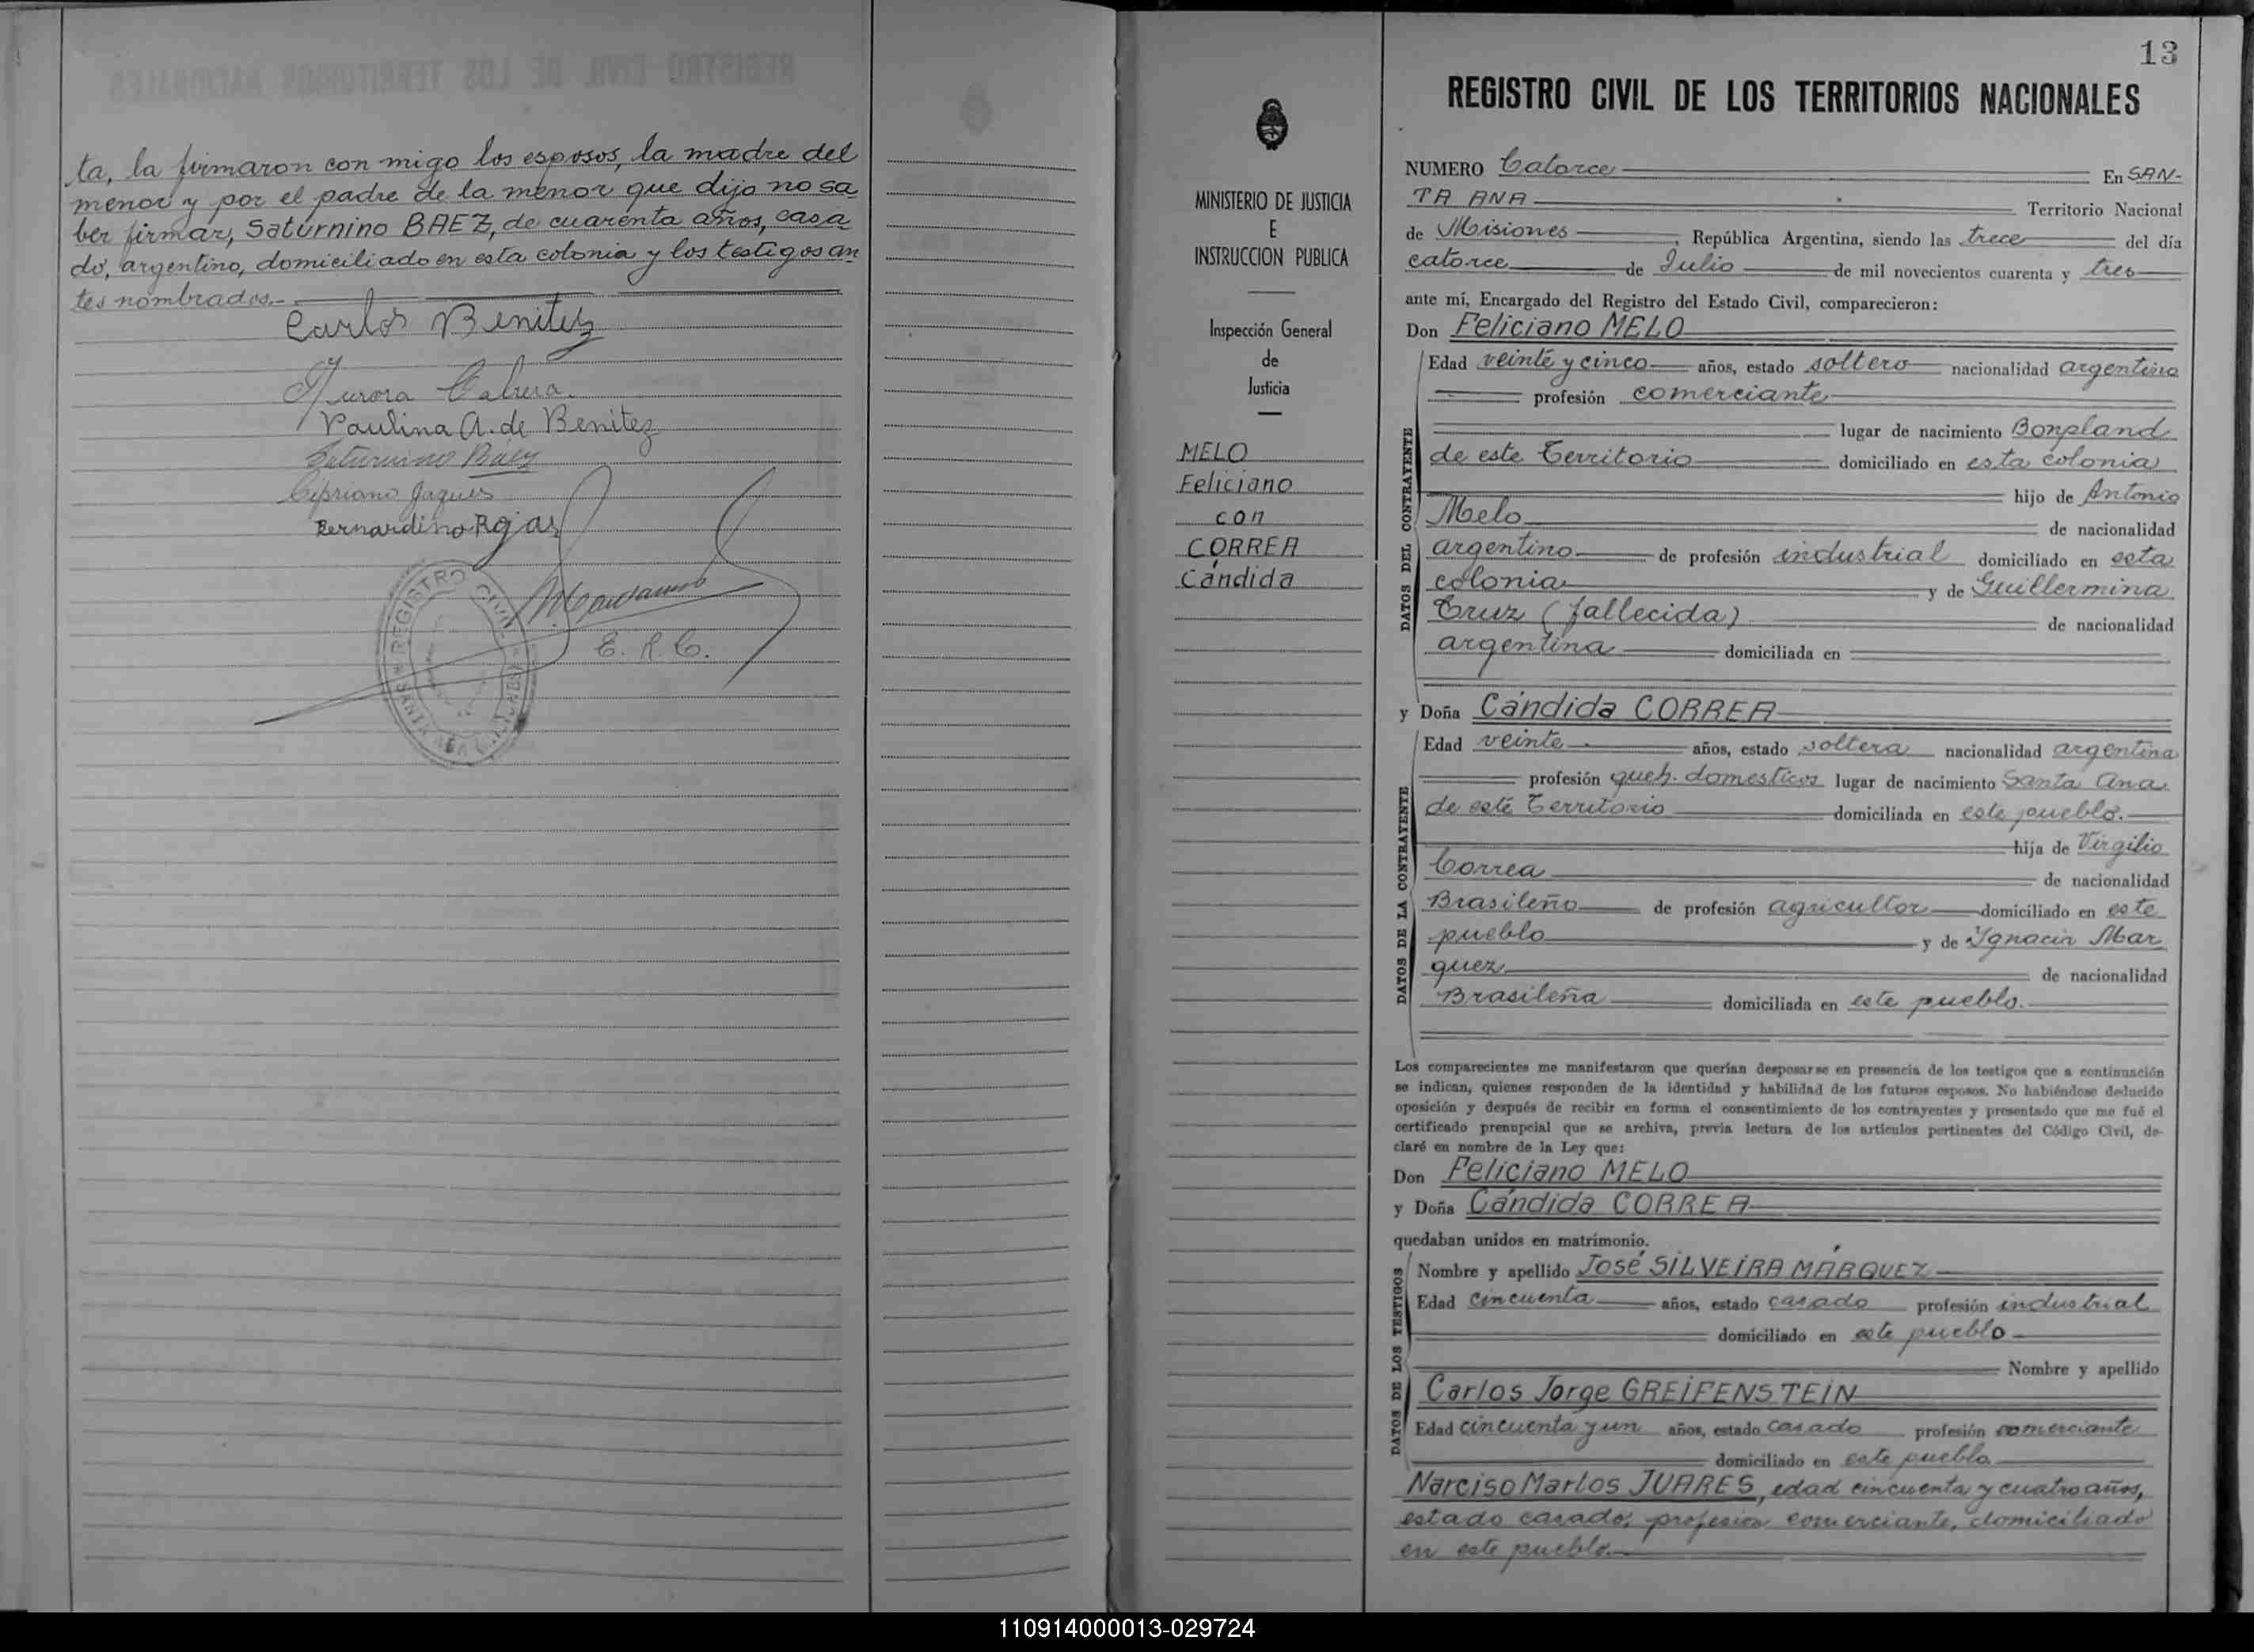 ta, la firmaron con migo los esposos, la madre del
menor y por el padre de la menor que dijo no sa
ber firmar, Saturnino BAEZ, de cuarenta años, casa
do, argentino, domiciliado en esta colonia y los testigos an
tes nombrados.-
Carlos Benitez
Aurora Cabrera
Paulina A. de Benitez
Saturnino Báez
Cipriano Jaques
Bernardino Rojas
E. R. C.
REGISTRO CIVIL
13
REGISTRO CIVIL DE LOS TERRITORIOS NACIONALES
MINISTERIO DE JUSTICIA
E
INSTRUCCION PUBLICA
Inspección General
de
Justicia
MELO
Feliciano
con
CORREA
Cándida
NUMERO Catorce En SAN-
TA ANA Territorio Nacional
de Misiones, República Argentina, siendo las trece del día
catorce de Julio de mil novecientos cuarenta y tres
ante mí, Encargado del Registro del Estado Civil, comparecieron:
Don Feliciano MELO
DATOS DEL CONTRAYENTE
Edad veinte y cinco años, estado soltero nacionalidad argentina
profesión comerciante
lugar de nacimiento Bonpland
de este Territorio domiciliado en esta colonia
hijo de Antonio
Melo de nacionalidad
argentino de profesión industrial domiciliado en esta
colonia y de Guillermina
Cruz (fallecida) de nacionalidad
argentina domiciliada en
y Doña Cándida CORREA
DATOS DE LA CONTRAYENTE
Edad veinte años, estado soltera nacionalidad argentina
profesión queh. domesticos lugar de nacimiento Santa Ana
de este Territorio domiciliada en este pueblo.
hija de Virgilio
Correa de nacionalidad
Brasileño de profesión agricultor domiciliado en este
pueblo y de Ignacia Mar
quez de nacionalidad
Brasileña domiciliada en este pueblo.
Los comparecientes me manifestaron que querían desposarse en presencia de los testigos que a continuación
se indican, quienes responden de la identidad y habilidad de los futuros esposos. No habiéndose deducido
oposición y después de recibir en forma el consentimiento de los contrayentes y presentado que me fué el
certificado prenupcial que se archiva, previa lectura de los artículos pertinentes del Código Civil, de-
claré en nombre de la Ley que:
Don Feliciano MELO
y Doña Cándida CORREA
quedaban unidos en matrimonio.
DATOS DE LOS TESTIGOS
Nombre y apellido José SILVEIRA MÁRQUEZ
Edad cincuenta años, estado casado profesión industrial
domiciliado en este pueblo
Nombre y apellido
Carlos Jorge GREIFENSTEIN
Edad cincuenta y un años, estado casado profesión comerciante
domiciliado en este pueblo.
Narciso Marlos JUARES, edad cincuenta y cuatro años,
estado casado, profesion comerciante, domiciliado
en este pueblo.
110914000013-029724